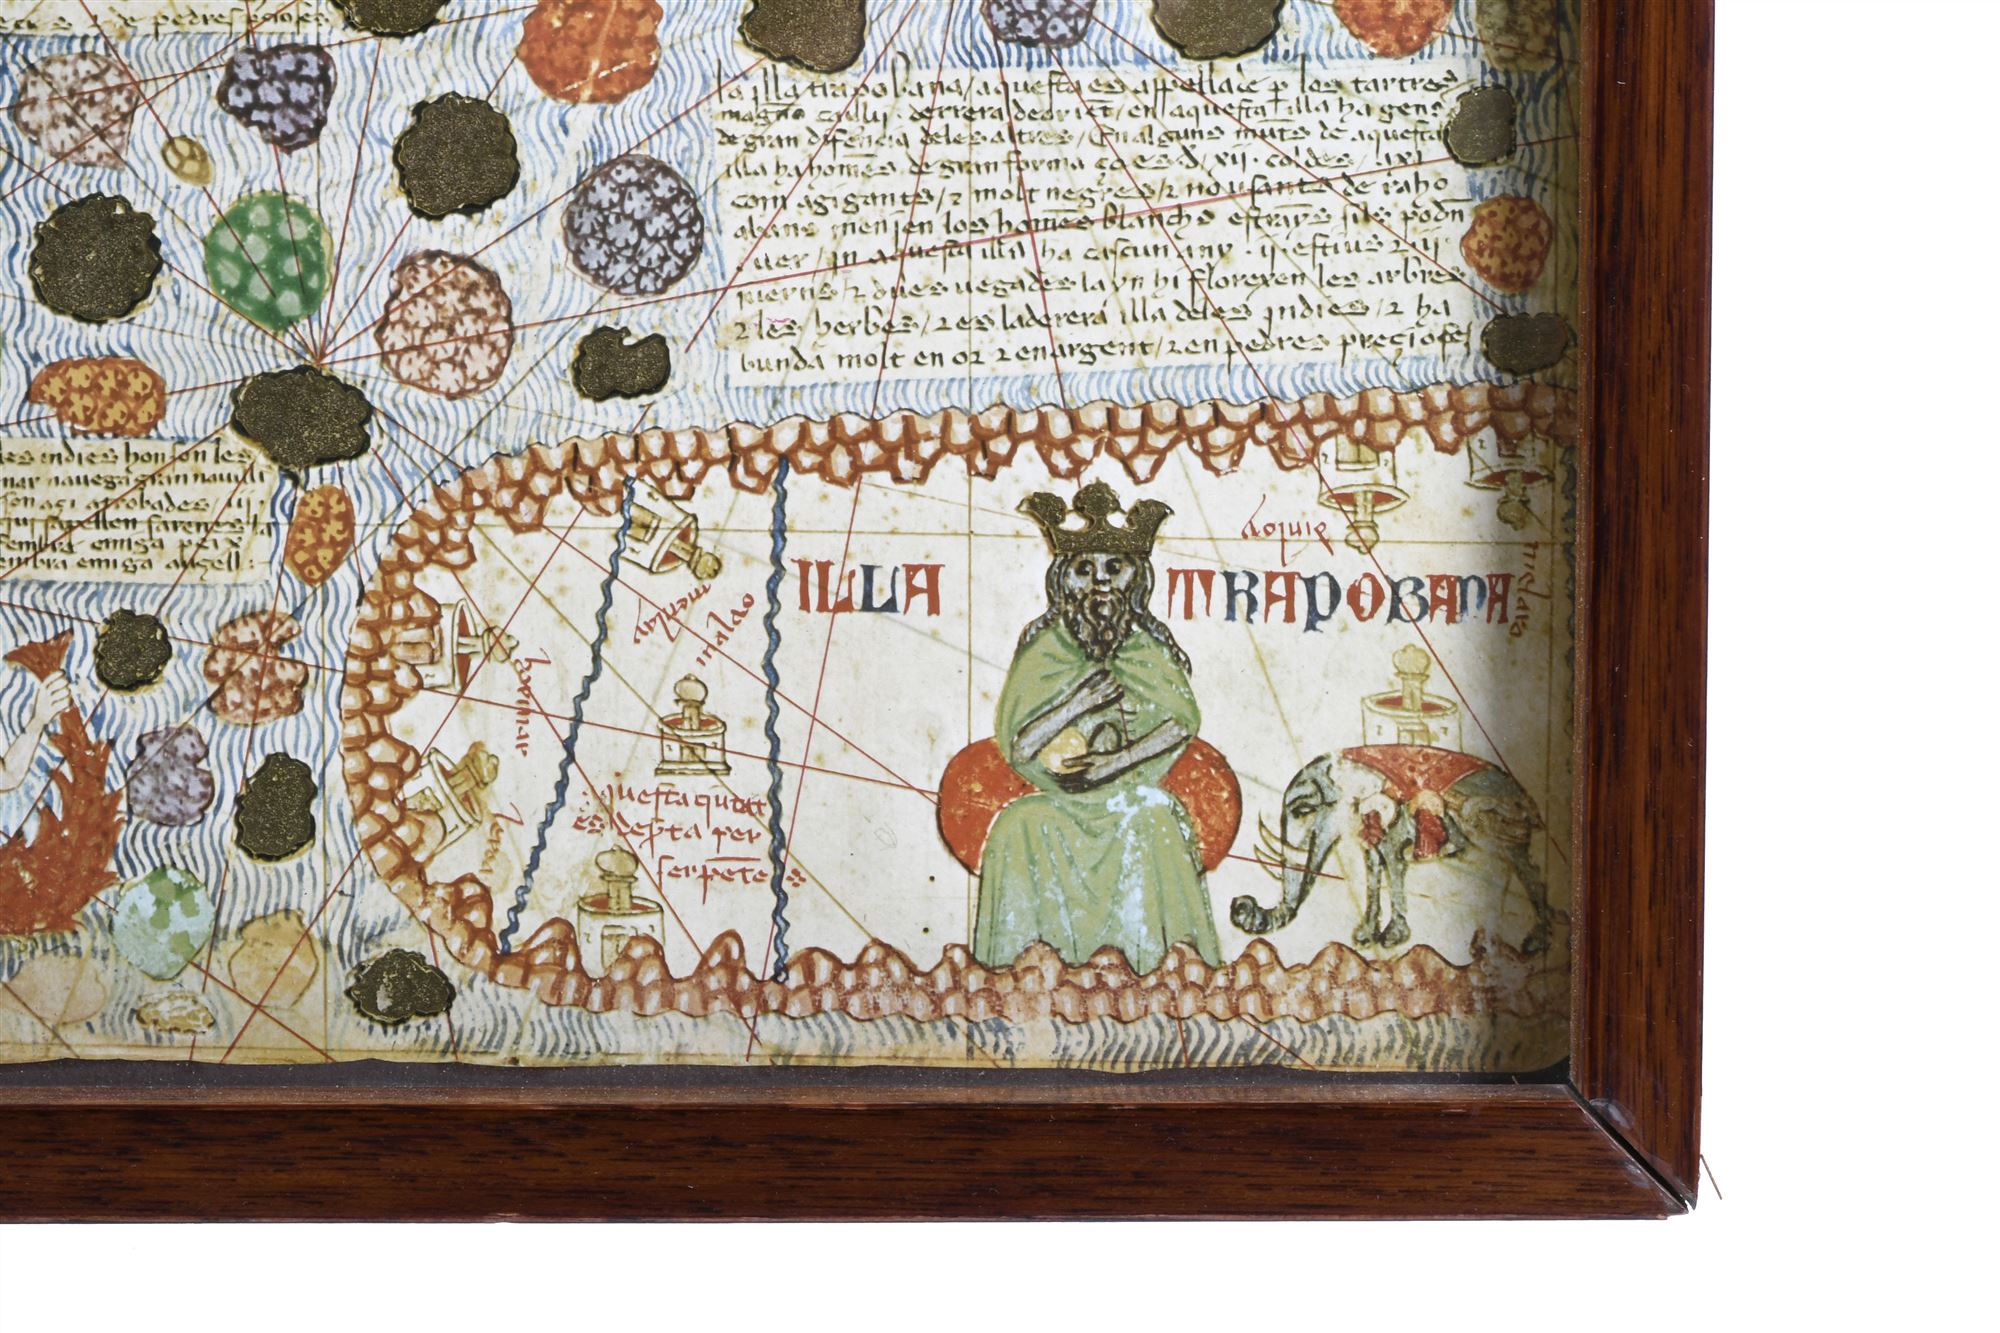 de pedres precioses
la illa trapobana / aquesta es appellade p los tartres
magno caulij . derrera de orient / en aquesta illa ha gens
de gran diferencia de les altres / En alguns munts de aquesta
illa ha homes de gran forma ço es d xii . coldes / axi
com agigants / e molt negres / e no usants de raho
abans menjen los homens blanchs estrayns sils poden
auer / in aquesta illa ha cascun any . ii . estius e ii .
iuerns / e dues uegades layn hi florexen les arbres
e les herbes / e es la derera illa deles indies / e ha
bunda molt en or e en argent / e en pedres precioses
les indies hon son les
mar nauega gran nauili
son açi atrobades iii .
qui sapellen sarenes la
fembra e miga peix
fembra e miga auçell :
ILLA TRAPOBANA
malao
aquesta ciutat
es depta per
serpetes